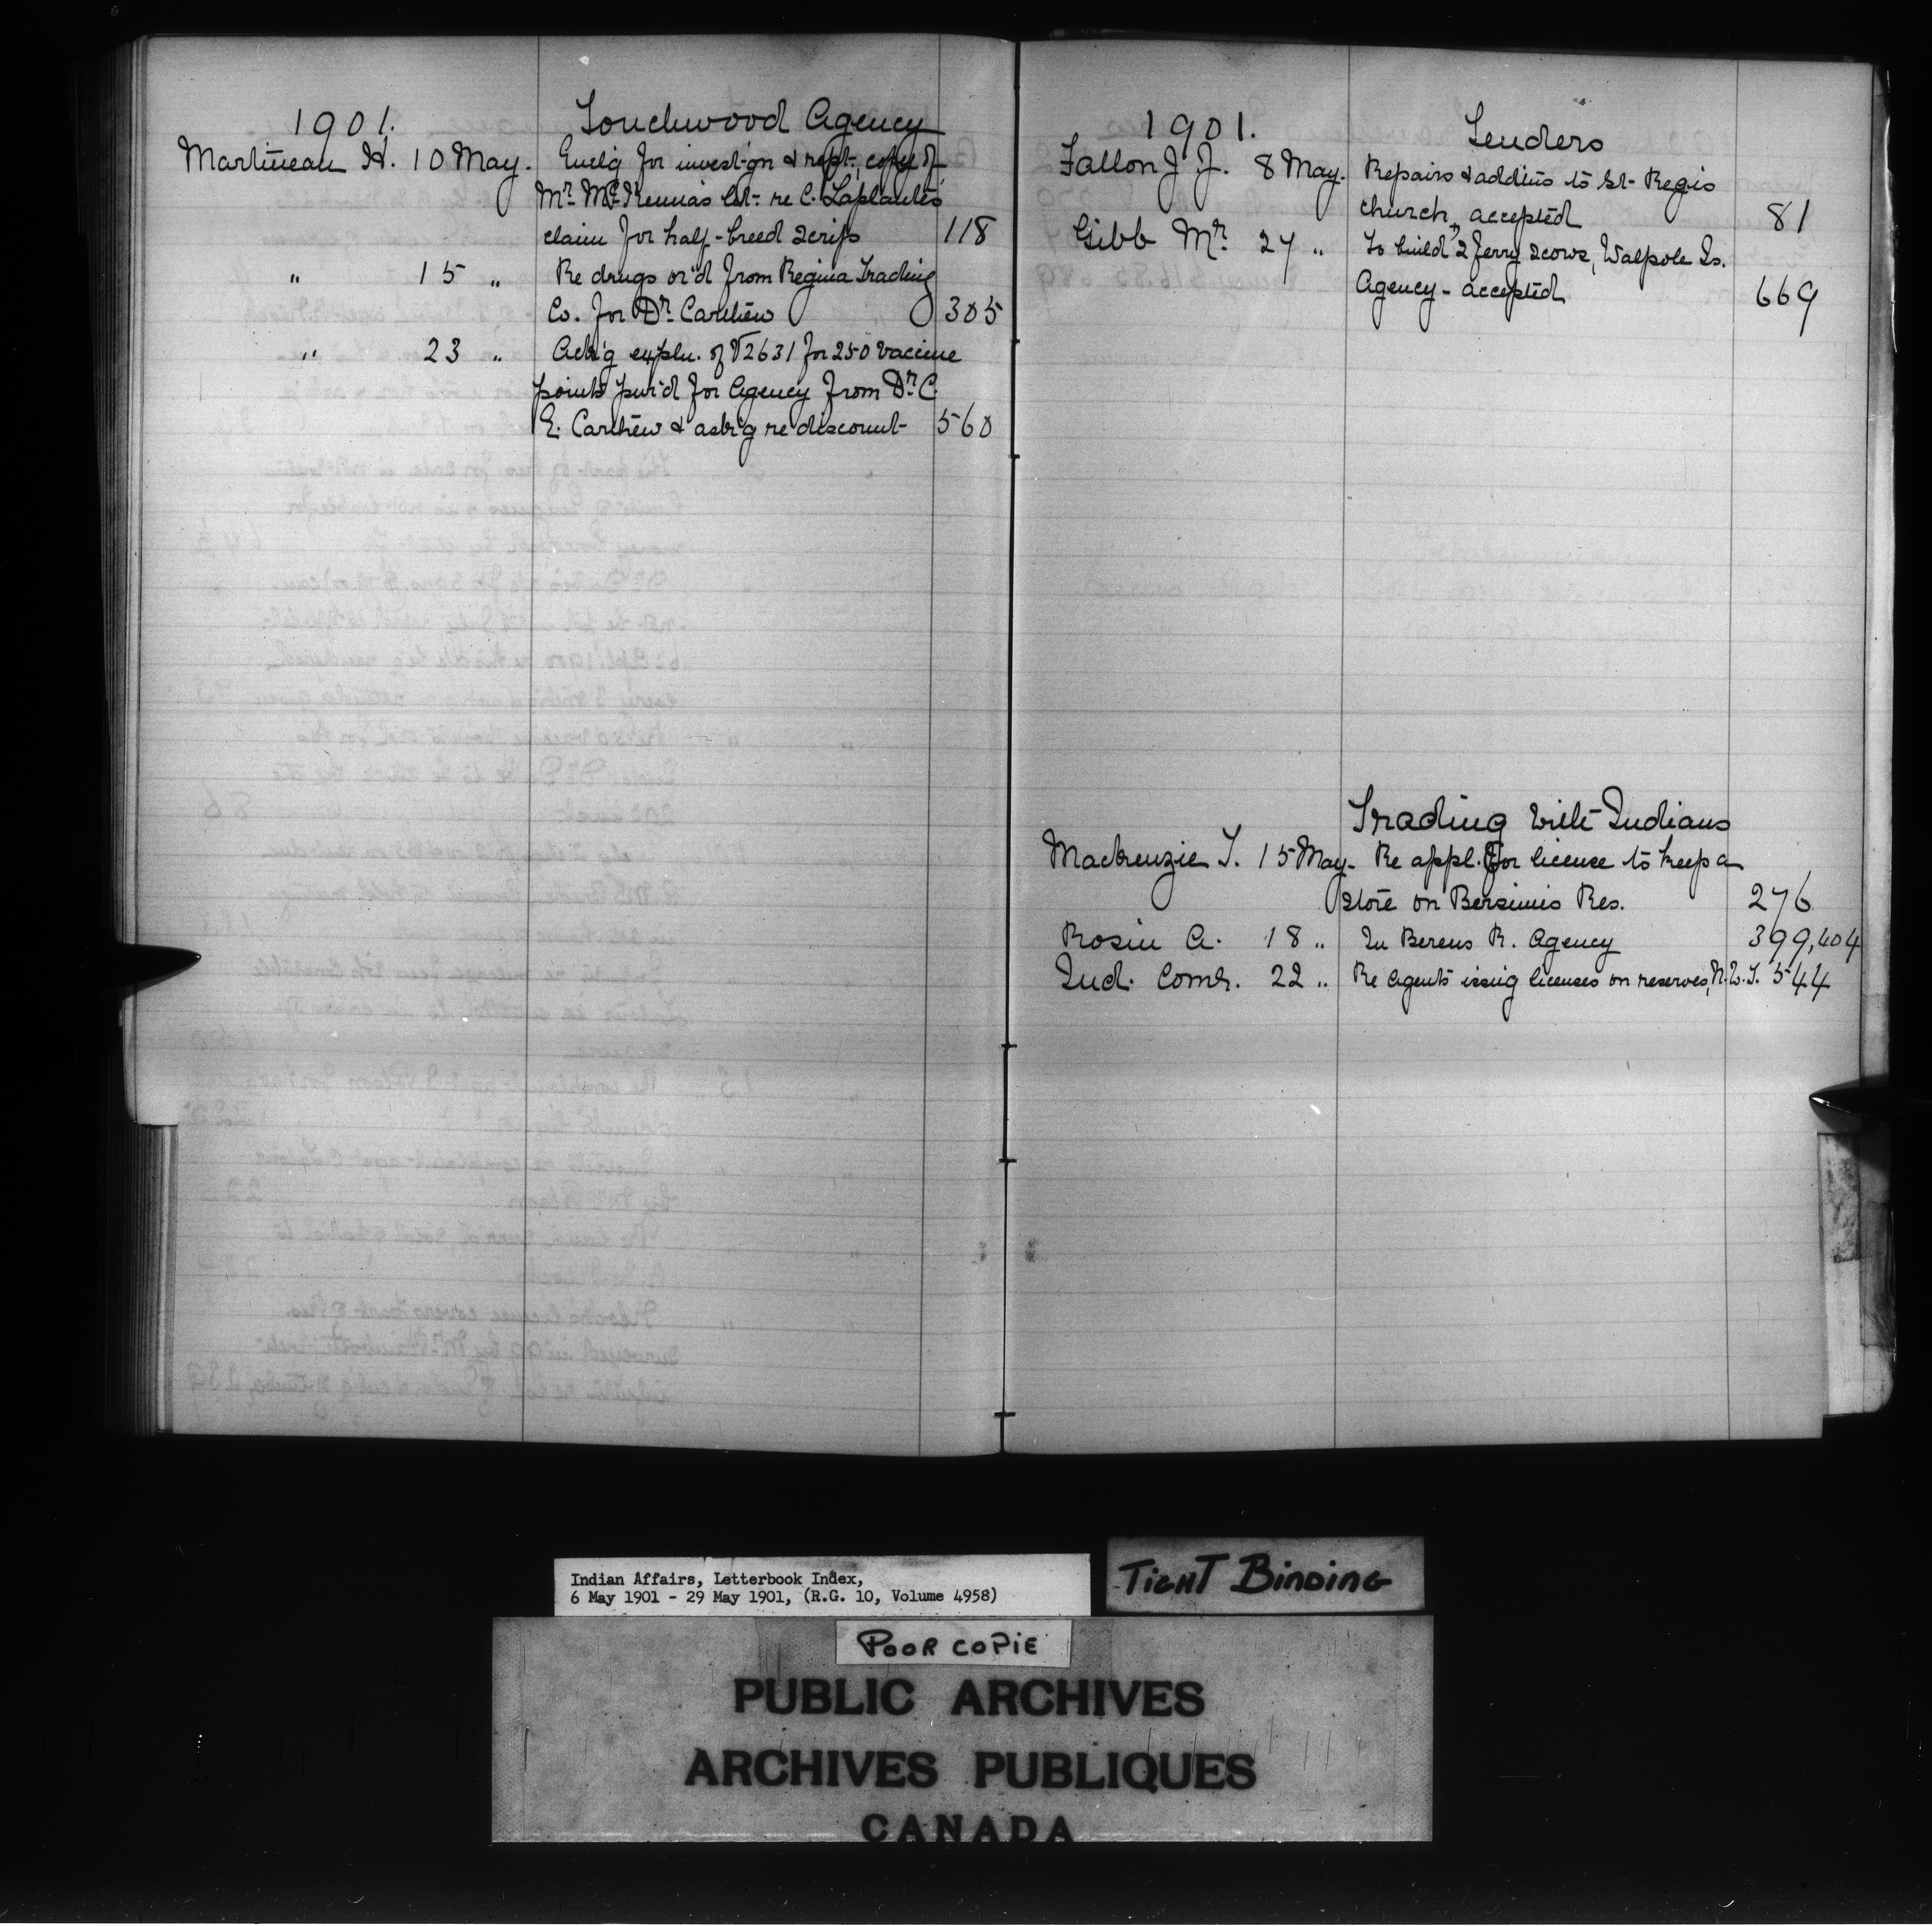 1901. Touchwood Agency
Martineau H. 10 May. Encl'g for invest-g'n & rept-, copy of
Mr. McKenna's let- re C. Laplante's
claim for half-breed scrip 118
" 15 " Re drugs or'd from Regina Trading
Co. for Dr. Carthew 305
" 23 " Ask'g expln. of V2631 for 250 vaccine
points pur'd for Agency from Dr. C.
E. Carthew & ask'g re discount- 560
1901. Tenders
Fallon J. J. 8 May. Repairs & addit'ns to St- Regis
church, accepted 81
Gibb Mr. 27 " To build 2 ferry scows, Walpole Is.
Agency - accepted 669
Trading with Indians
Mackenzie T. 15 May. Re appl. for license to keep a
store on Bersimis Res. 276
Rosin A. 18 " In Berens R. Agency 399,404
Ind. Comr. 22 " Re Agents issuig licenses on reserves, N.W.T. 544
Indian Affairs, Letterbook Index,
6 May 1901 - 29 May 1901, (R.G. 10, Volume 4958)
TIGHT BINDING
POOR COPIE
PUBLIC ARCHIVES
ARCHIVES PUBLIQUES
CANADA